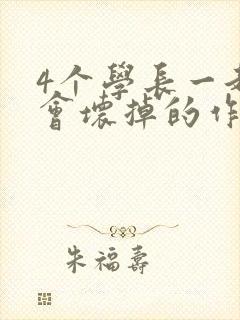 4个學長一
會壞掉的作
朱福壽